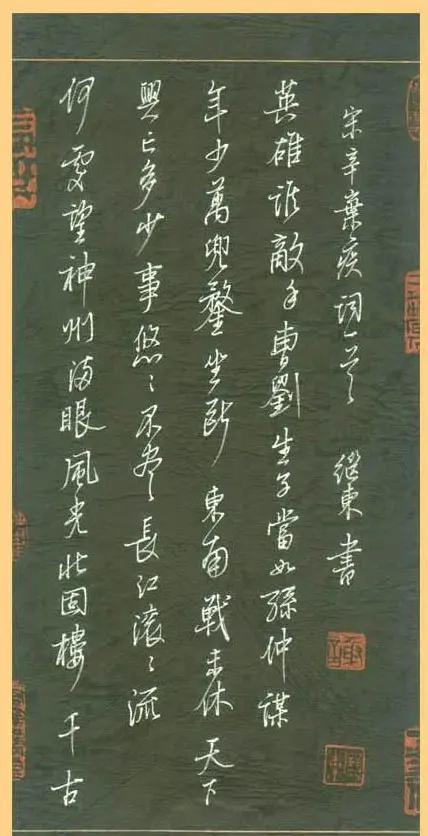 何處望神州滿眼風光北固樓 千古
興亡多少事悠悠不盡長江滾滾流
年少萬兜鍪坐斷 東南戰未休 天下
英雄誰敵手曹劉生子當如孫仲謀
宋辛棄疾詞一首 繼東書